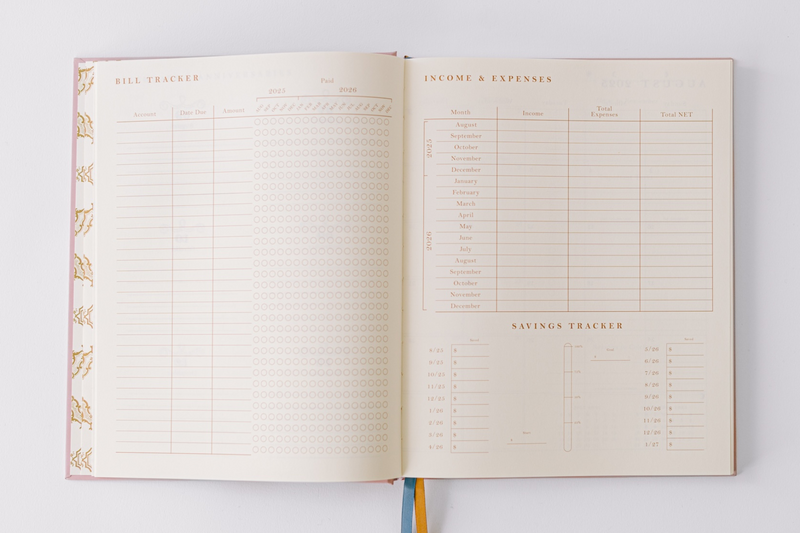 BILL TRACKER
Paid
2025 2026
Account Date Due Amount
INCOME & EXPENSES
Month Income Total Expenses Total NET
2025
August
September
October
November
December
2026
January
February
March
April
May
June
July
August
September
October
November
December
SAVINGS TRACKER
8/25 $
9/25 $
10/25 $
11/25 $
12/25 $
1/26 $
2/26 $
3/26 $
4/26 $
$
$
5/26 $
6/26 $
7/26 $
8/26 $
9/26 $
10/26 $
11/26 $
12/26 $
1/27 $